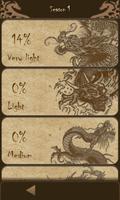 Season 1
14%
Very light
0%
Light
0%
Medium